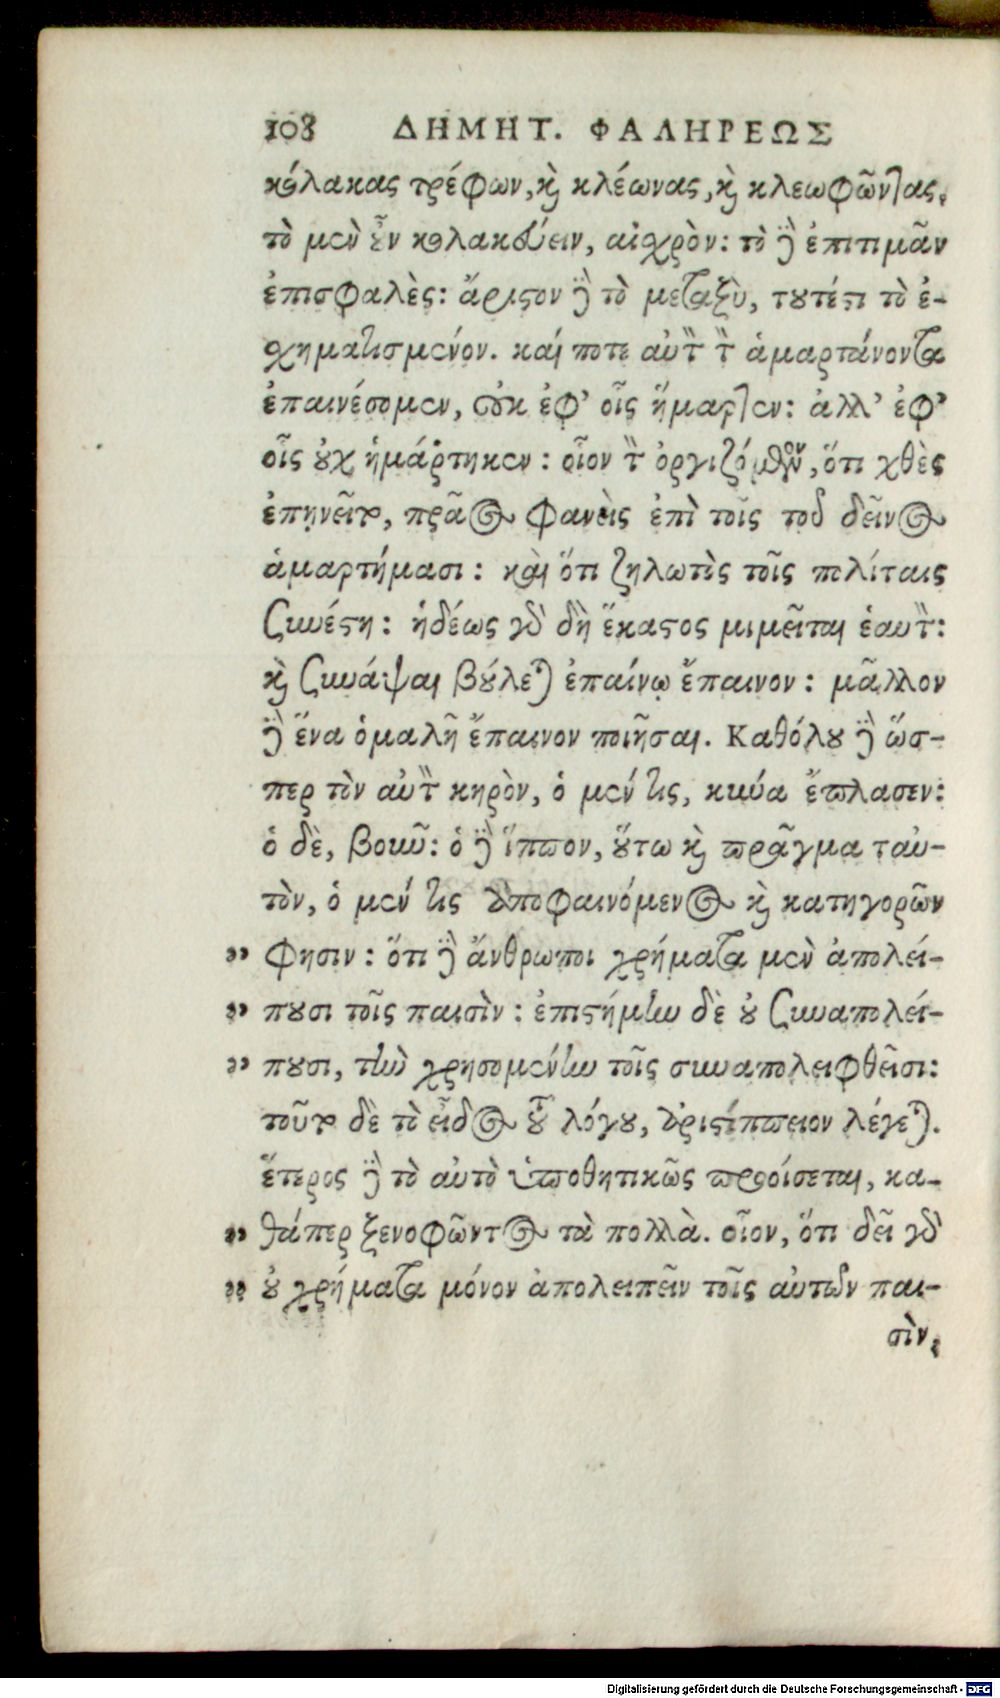 108 ΔΗΜΗΤ. ΦΑΛΗΡΕΩΣ
κόλακας τρέφων, καὶ κλέωνας, καὶ κλεωφῶντας,
τὸ μὲν οὖν κολακεύειν, αἰσχρὸν: τὸ δὲ ἐπιτιμᾶν
ἐπισφαλὲς: ἄριστον δὲ τὸ μεταξὺ, τουτέστι τὸ ἐ-
σχηματισμένον. καί ποτε αὐτὸν τὸν ἁμαρτάνοντα
ἐπαινέσομεν, οὐκ ἐφ' οἷς ἥμαρτεν: ἀλλ' ἐφ'
οἷς οὐχ ἡμάρτηκεν: οἷον τὸν ὀργιζόμενον, ὅτι χθὲς
ἐπηνεῖτο, πρᾶος φανεὶς ἐπὶ τοῖς τοῦ δεῖνος
ἁμαρτήμασι: καὶ ὅτι ζηλωτὴς τοῖς πολίταις
συνέστη: ἡδέως γὰρ δὴ ἕκαστος μιμεῖται ἑαυτὸν:
καὶ συνάψαι βούλεται ἐπαίνῳ ἔπαινον: μᾶλλον
δὲ ἕνα ὁμαλῆ ἔπαινον ποιῆσαι. Καθόλου δὲ ὥσ-
περ τὸν αὐτὸν κηρὸν, ὁ μέν τις, κύνα ἔπλασεν:
ὁ δὲ, βοῦν: ὁ δὲ ἵππον, οὕτω καὶ πρᾶγμα ταὐ-
τὸν, ὁ μέν τις ἀποφαινόμενος καὶ κατηγορῶν
» φησιν: ὅτι δὲ ἄνθρωποι χρήματα μὲν ἀπολεί-
» πουσι τοῖς παισὶν: ἐπιστήμην δὲ οὐ συναπολεί-
» πουσι, τὴν χρησομένην τοῖς συναπολειφθεῖσι:
τοῦτο δὲ τὸ εἶδος τοῦ λόγου, ἀριστίππειον λέγεται.
ἕτερος δὲ τὸ αὐτὸ ὑποθητικῶς προοίσεται, κα-
» θάπερ ξενοφῶντος τὰ πολλὰ. οἷον, ὅτι δεῖ γὰρ
» οὐ χρήματα μόνον ἀπολειπεῖν τοῖς αὐτῶν παι-
σὶν,
Digitalisierung gefördert durch die Deutsche Forschungsgemeinschaft - DFG